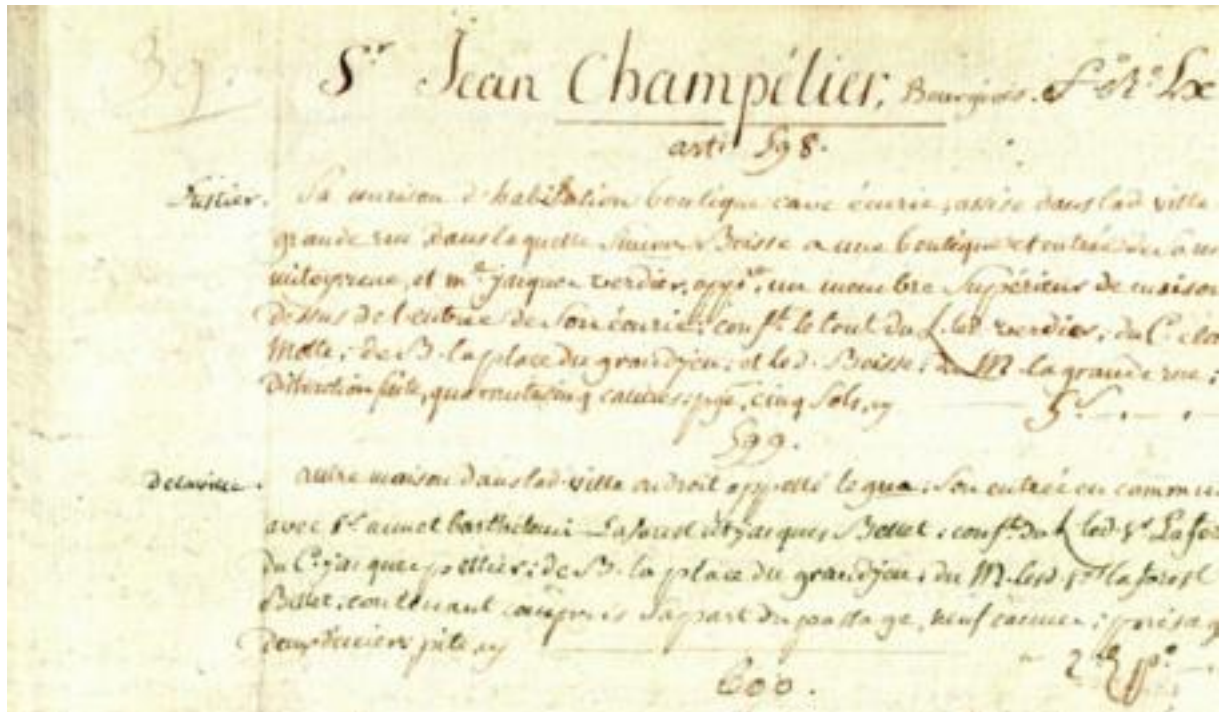 39.
Sr Jean Champélier, Bourgeois.
arti 598.
Sa maison d'habitation boutique cave écurie, assise dans lad ville
grande rue, dans laquelle Boisse a une boutique et entrée
mitoyenne, et me jacques verdier, un membre supérieur de maison
dessus de l'entrée de son écurie; conf.t le tout du L. led verdier; du C.
Motte; de B. la place du grandjeu; et led. Boisse; du M. la grande rue;
cinq sols, 5s
599.
delaville. autre maison dans lad ville endroit appellé legua; son entrée en commun
avec Sr annet barthelemi Laforest et jacques Bellet; conf.t du L led. Sr Lafor
du C. jacques pettier; de B. la place du grandjeu; du M. lesd. Srs laforest
Bellet; contenant compris sa part du passage, neuf cannes;
deux deniers pite
600.